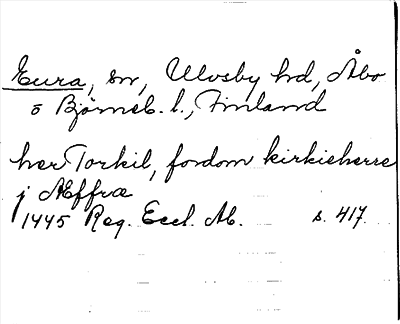 Eura, sn, Ulvsby hd, Åbo
o Björneb. l., Finland
her Torkil, fordom kirkieherre
j Æffræ
1445 Reg. Eccl. Ab. s. 417.